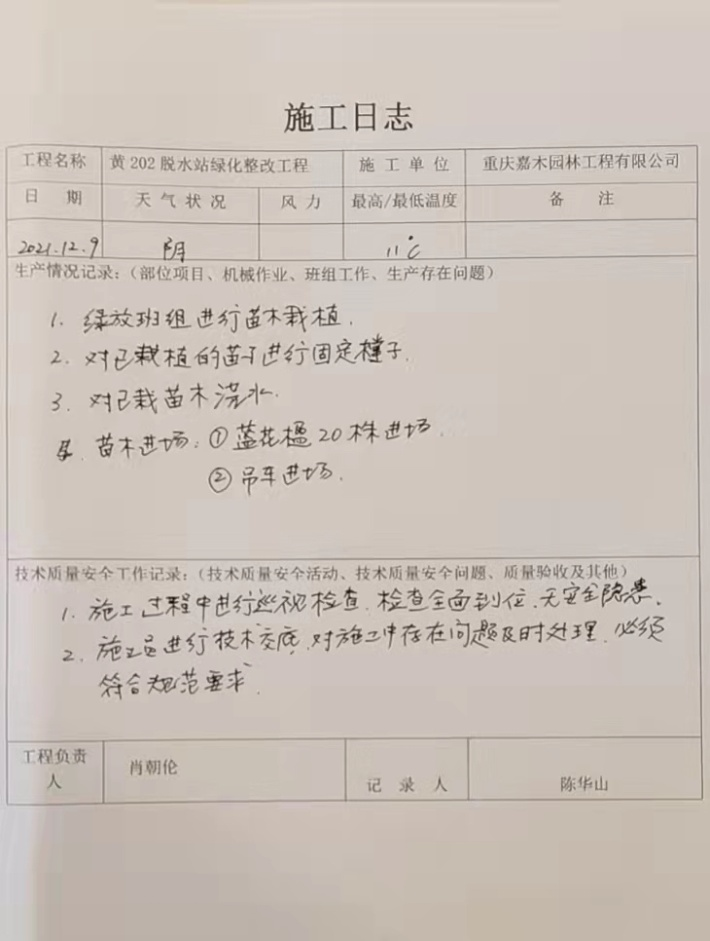 施工日志
工程名称 黄202脱水站绿化整改工程 施工单位 重庆嘉木园林工程有限公司
日期 天气状况 风力 最高/最低温度 备注
2021.12.9 阴 11℃
生产情况记录:（部位项目、机械作业、班组工作、生产存在问题）
1. 绿放班组进行苗木栽植.
2. 对已栽植的苗子进行固定橦子.
3. 对已栽苗木浇水.
苗木进场: ①蓝花楹20株进场.
②吊车进场.
技术质量安全工作记录:（技术质量安全活动、技术质量安全问题、质量验收及其他）
1. 施工过程中进行巡视检查, 检查全面到位, 无安全隐患.
2. 施工员进行技术交底, 对施工中存在问题及时处理, 必须
符合规范要求.
工程负责 肖朝伦 记录人 陈华山
人